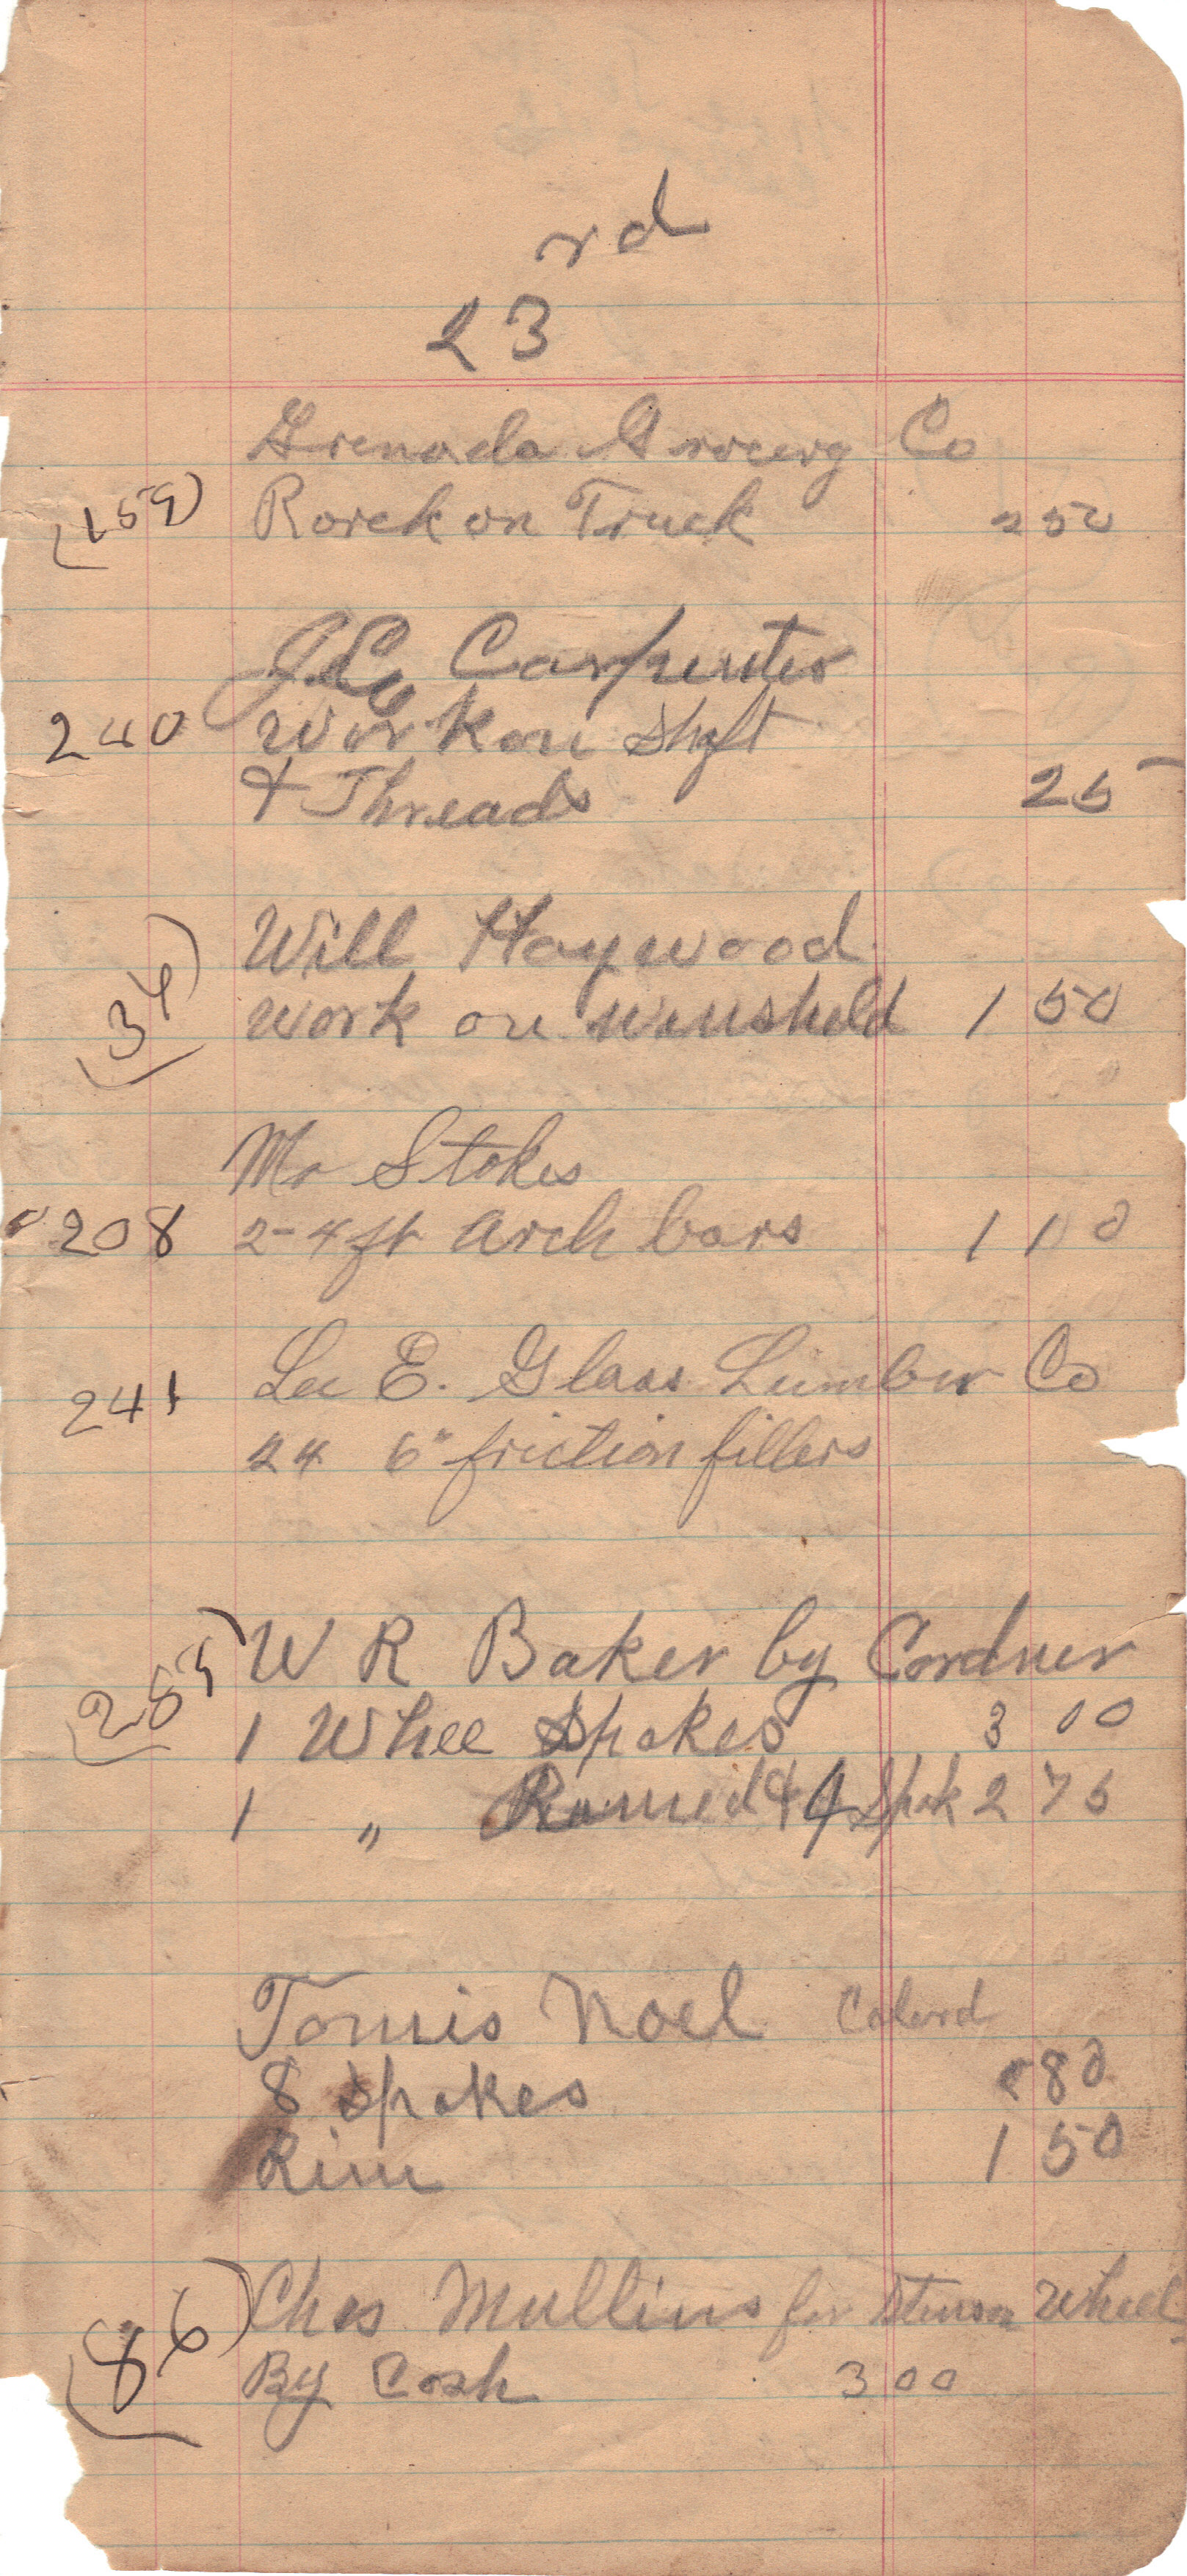 23rd
Grenada Grocery Co
(159) Rorck on Truck 250
J.L. Carpenter
240 Work on Shaft
& Threads 25
Will Haywood
(34) Work on winsheld 1 50
Mr Stokes
208 2-4 ft arch bars 1 10
Lee E. Glass Lumber Co
241 24 6" friction fillers
W R Baker by Cordner
1 Whee Spokes 3 00
1 " & 4 Spok 2 75
Tomis Noel Colord
8 Spokes 80
Rim 1 50
(86) Chas Mullins for Wheel
By Cash 3 00